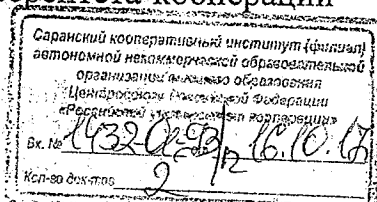 кооперации
Саранский кооперативный институт (филиал)
автономной некоммерческой образовательной
организации высшего образования
Центросоюза Российской Федерации
«Российский университет кооперации»
Вх. № 16.10.17
Кол-во док-тов 2